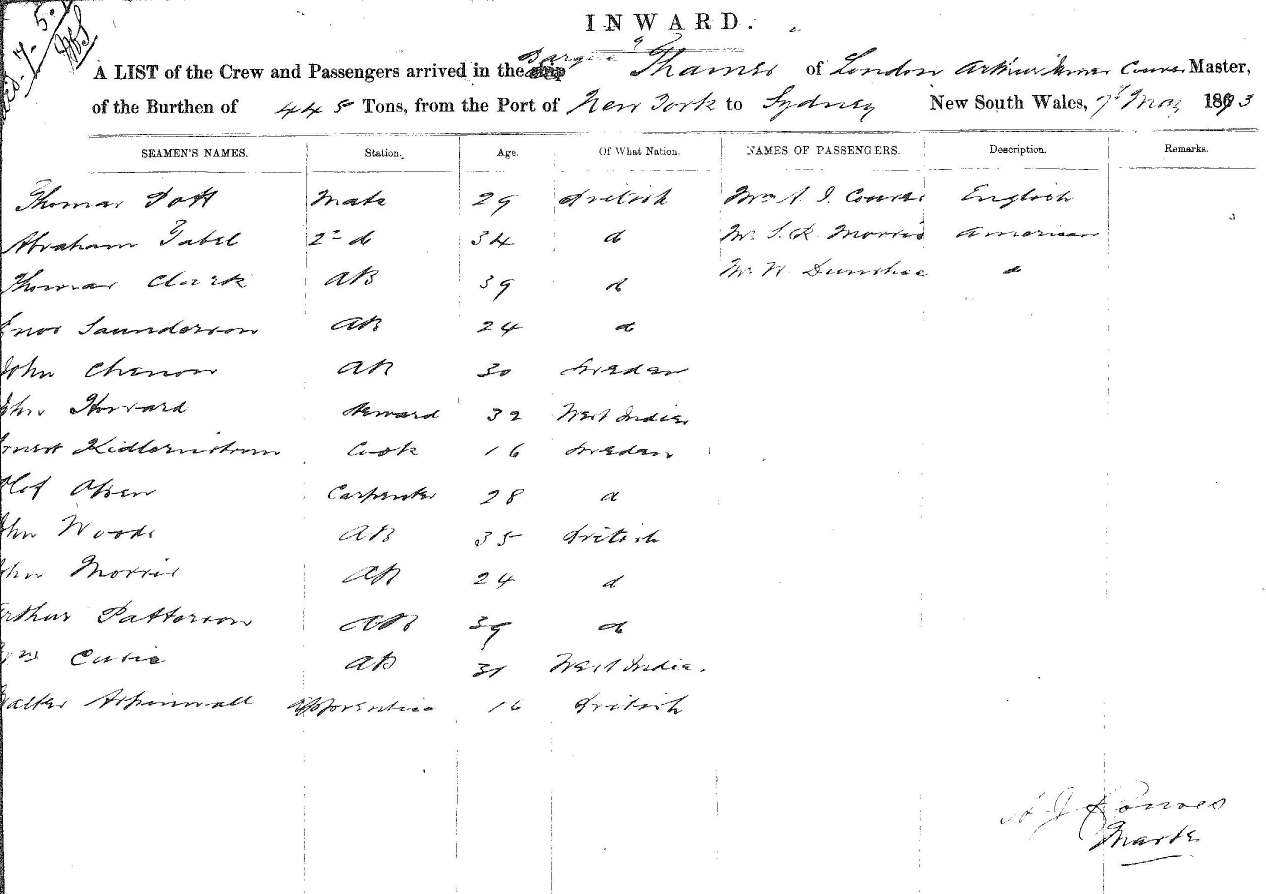 INWARD.
A LIST of the Crew and Passengers arrived in the Barque Thames of London Arthur James Master,
of the Burthen of 445 Tons, from the Port of New York to Sydney New South Wales, 7th May 1873
SEAMEN'S NAMES. Station. Age. Of What Nation. NAMES OF PASSENGERS. Description. Remarks.
Thomas Mate 29 British Mrs A. J. English
Abraham Tabel 2nd 34 d Mr S. R. Morris American
Thomas Clark AB 39 d Mr W. d
Saunderson AB 24 d
John AB 30 Sweden
John Howard Steward 32 West Indies
Cook 16 Sweden
Olof Olsen Carpenter 28 d
John Woods AB 35 British
John Morris AB 24 d
Arthur Patterson AB 39 d
AB 31 West Indies
Walter Aspinwall Apprentice 16 British
A J
Master